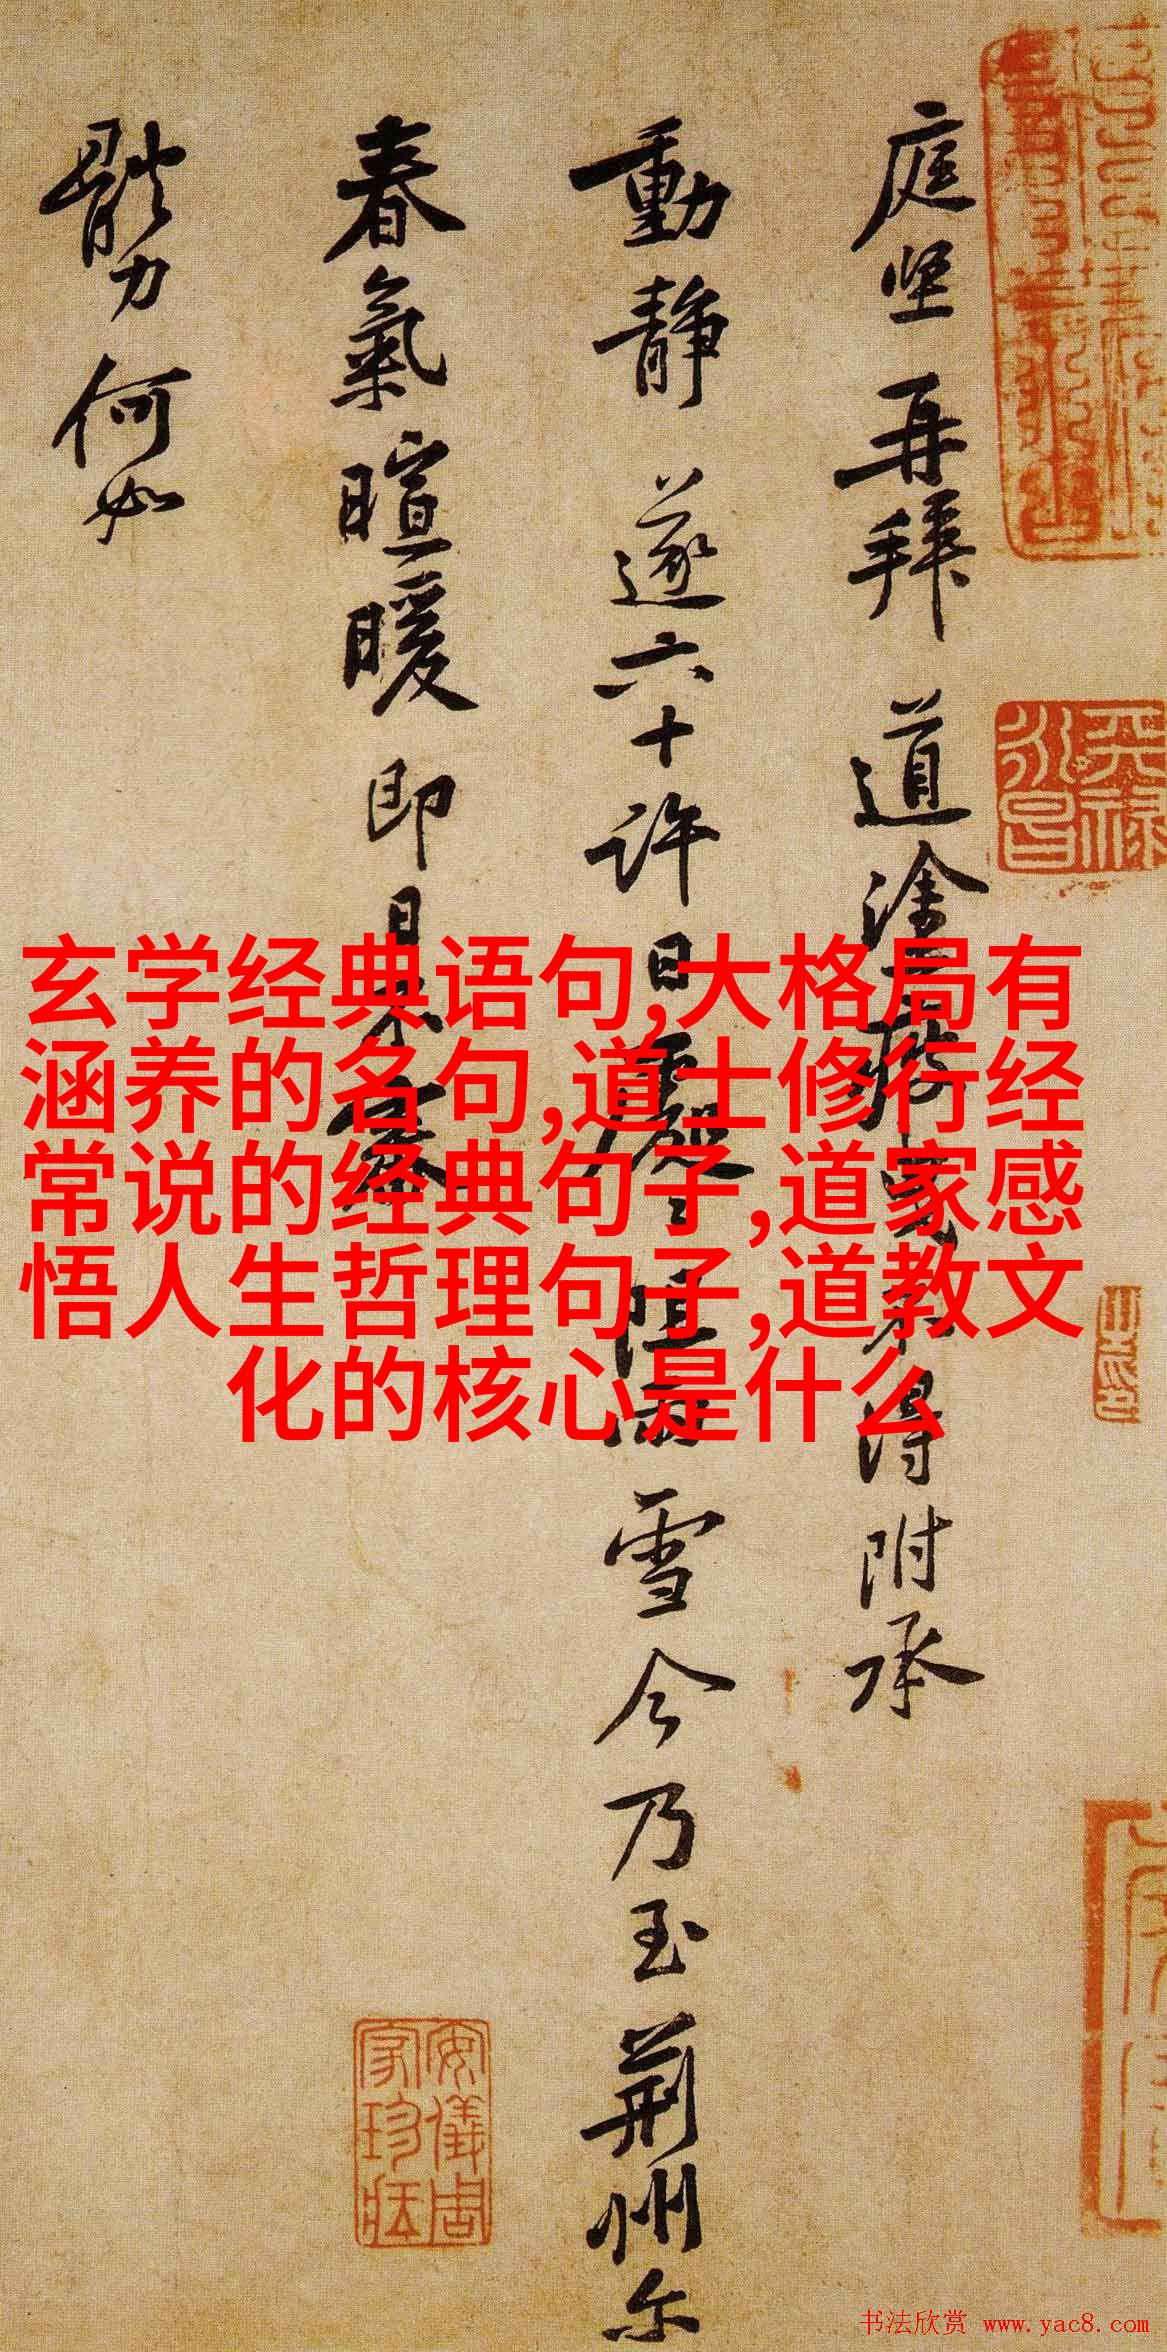 庭坚再拜道涂
得附承
動静遂六十许日
阻雨雪今乃至荆州尔
春氣暄暖即日不審
體力何如
玄学经典语句,大格局有
涵养的名句,道士修行经
常说的经典句子,道家感
悟人生哲理句子,道教文
化的核心是什么
天禄
永昌
安儀周
家珍藏
书法欣赏 www.yac8.com